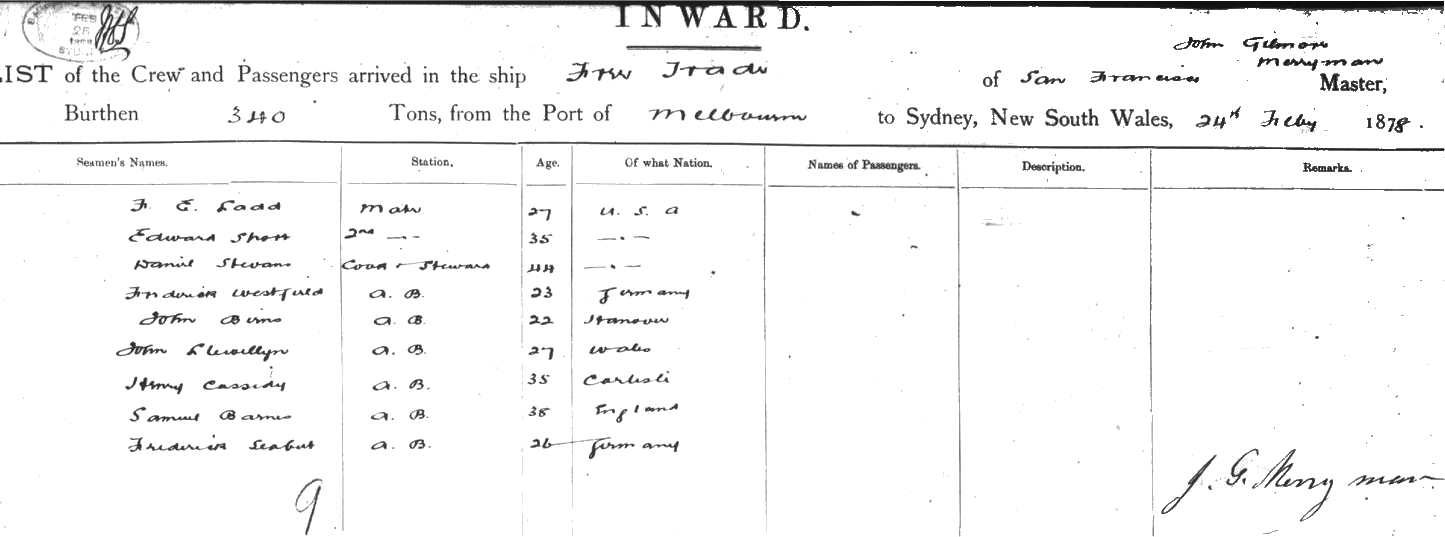 INWARD.
John Gilmore
Merryman
LIST of the Crew and Passengers arrived in the ship Free Trade of San Francisco Master,
Burthen 340 Tons, from the Port of Melbourne to Sydney, New South Wales, 24th Feby 1878.
Seamen's Names. Station, Age. Of what Nation. Names of Passengers. Description. Remarks.
F. E. Ladd Mate 27 U. S. A
Edward Short 2nd —·- 35 —·—
Daniel Stevens Cook & Steward 44 —·—
Frederick Westfield A. B. 23 Germany
John Birns A. B. 22 Hanover
John Llewellyn A. B. 27 Wales
Henry Cassidy A. B. 35 Carlisle
Samuel Barnes A. B. 38 England
Frederick A. B. 26 Germany
9
J. G. Merryman